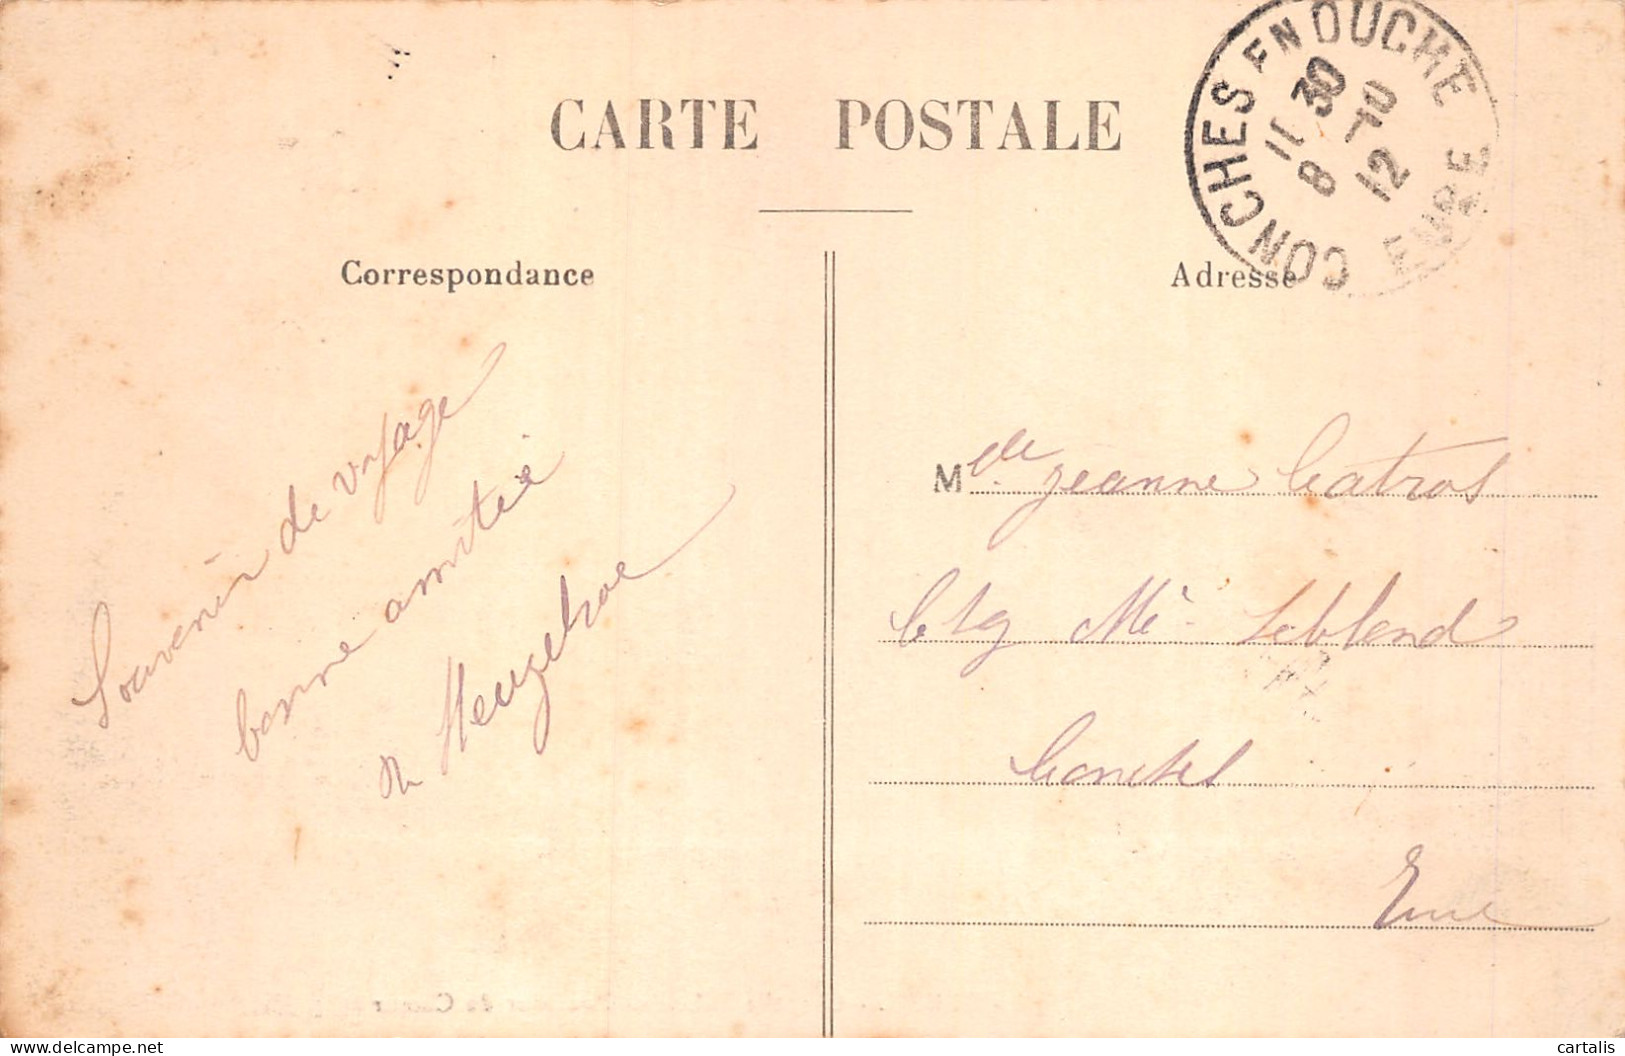 CARTE POSTALE
CONCHES EN OUCHE
EURE
11 30
8 10
12
Correspondance
Souvenir de voyage
bonne amitié
Adresse
Mlle Jeanne Catros
Me Leblond
Conches
Eure
cartalis
www.delcampe.net